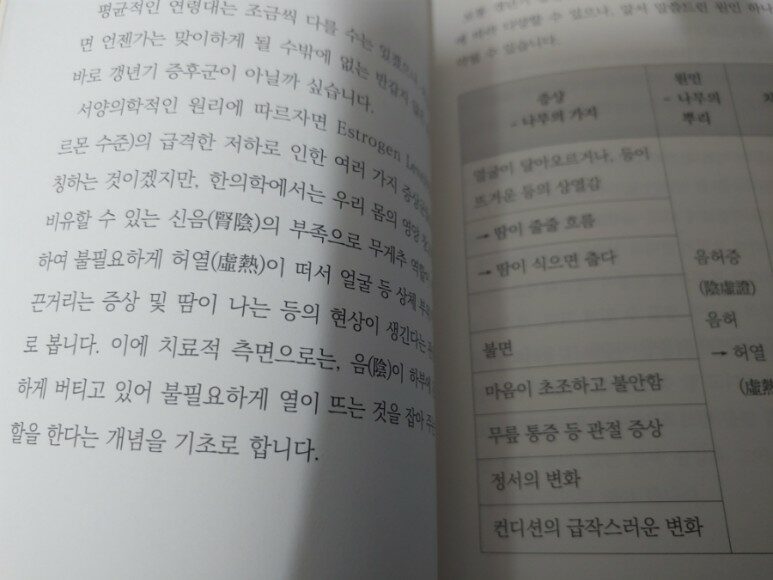 평균적인 연령대는 조금씩 다를 수는 있겠으나,
면 언젠가는 맞이하게 될 수밖에 없는 반갑지 않은
바로 갱년기 증후군이 아닐까 싶습니다.
서양의학적인 원리에 따르자면 Estrogen
르몬 수준)의 급격한 저하로 인한 여러 가지
칭하는 것이겠지만, 한의학에서는 우리 몸의 영양
비유할 수 있는 신음(腎陰)의 부족으로 무게추 역할
하여 불필요하게 허열(虛熱)이 떠서 얼굴 등 상체
끈거리는 증상 및 땀이 나는 등의 현상이 생긴다는
로 봅니다. 이에 치료적 측면으로는, 음(陰)이 하부에
하게 버티고 있어 불필요하게 열이 뜨는 것을 잡아 주는
할을 한다는 개념을 기초로 합니다.
에 따라 다양할 수 있으나, 앞서 말씀드린 원인 하나
약할 수 있습니다.
증상
- 나무의 가지
원인
- 나무의
뿌리
얼굴이 달아오르거나, 등이
뜨거운 등의 상열감
→ 땀이 줄줄 흐름
→ 땀이 식으면 춥다
불면
마음이 초조하고 불안함
무릎 통증 등 관절 증상
정서의 변화
컨디션의 급작스러운 변화
음허증
(陰虛證)
음허
→ 허열
(虛熱